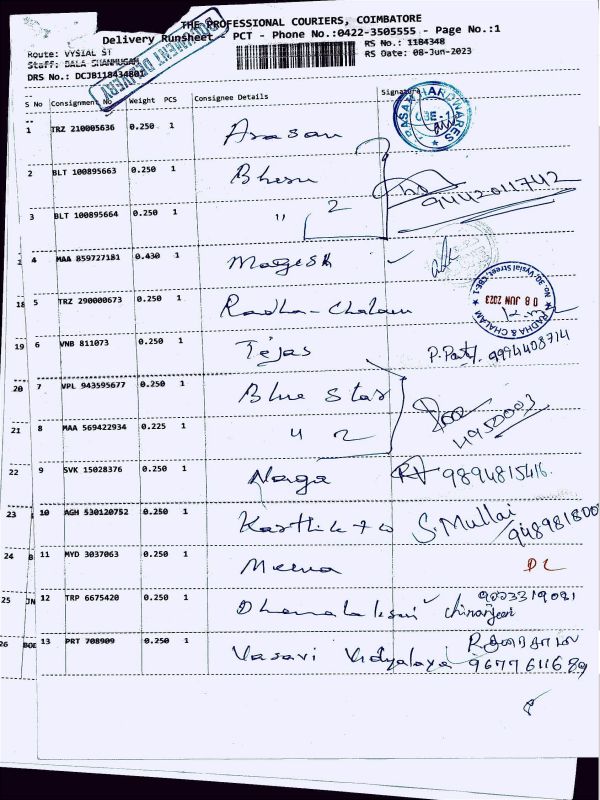 THE PROFESSIONAL COURIERS, COIMBATORE
Delivery Runsheet - PCT - Phone No.:0422-3505555 - Page No.:1
Route: VYSIAL ST
RS No.: 1184348
Staff: BALA SHANMUGAM
RS Date: 08-Jun-2023
DRS No.: DCJB118434801
S No Consignment No Weight PCS Consignee Details Signature
1 TRZ 210005636 0.250 1 Arasan
2 BLT 100895663 0.250 1 9442011742
3 BLT 100895664 0.250 1 " 2
4 MAA 859727181 0.430 1 Magesh
18 5 TRZ 290000673 0.250 1 Radha-Chalam
RADHA & CHALAM No. 30, Vysial Street, CBE-1 08 JUN 2023
19 6 VNB 811073 0.250 1 Tejas 9994408714
20 7 VPL 943595677 0.250 1 Blue Star 4950003
21 8 MAA 569422934 0.225 1 " 2
22 9 SVK 15028376 0.250 1 Naga 9894815416
23 10 AGH 530120752 0.250 1 S. Mullai
24 11 MYD 3037063 0.250 1 Meena DL
25 12 TRP 6675420 0.250 1
26 13 PRT 708909 0.250 1 Vasavi Vidyalaya 9677611689